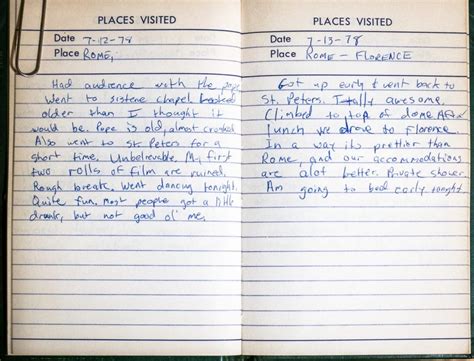 PLACES VISITED
Date 7-12-78
Place ROME,
Had audience with the pope
Went to sistene chapel looked
older than I thought it
would be. Pope is old, almost croaked
Also went to St Peters for a
short time. Unbelievable. My first
two rolls of film are ruined.
Rough break, went dancing tonight.
Quite fun, most people got a little
drunk, but not good ol' me.
PLACES VISITED
Date 7-13-78
Place ROME - FLORENCE
Got up early & went back to
St. Peters. Totally awesome.
Climbed to top of dome. After
lunch we drove to Florence.
In a way its prettier than
Rome, and our accommodations
are alot better. Private shower.
Am going to bed early tonight.